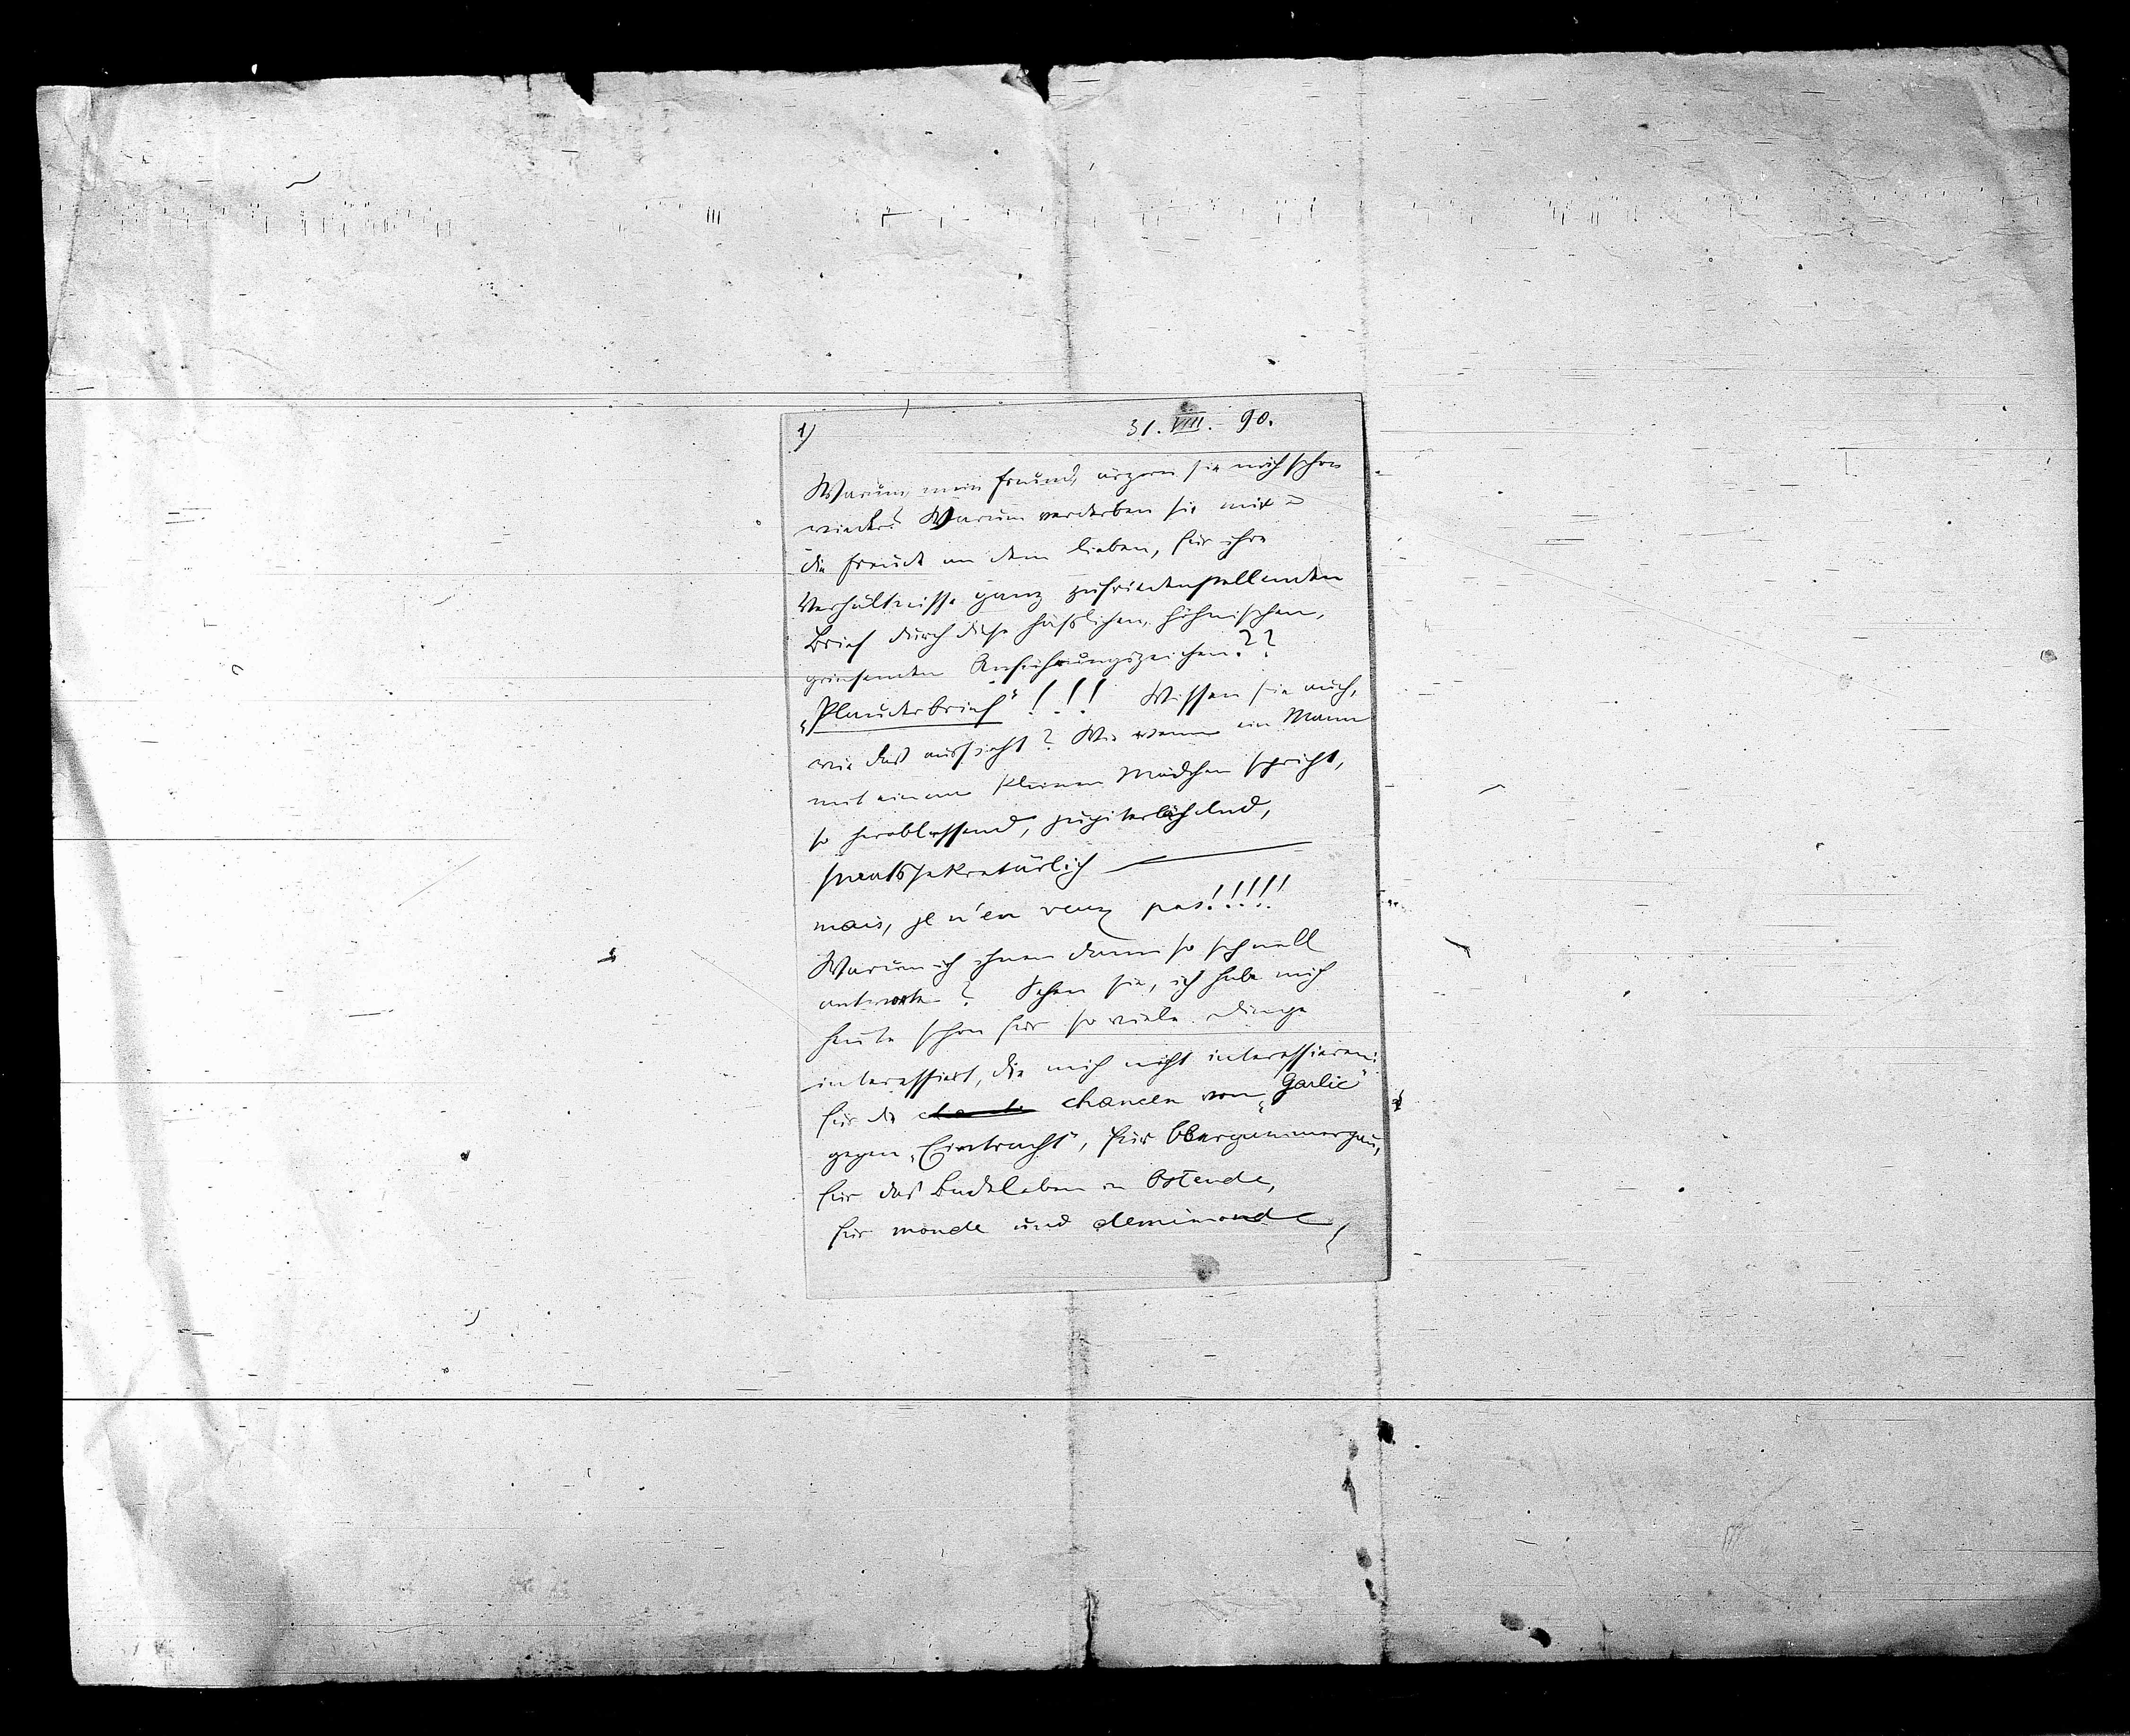 1) 31. VIII. 90.
Warum, mein Freund, ärgern sie mich schon
wieder? Warum verderben sie mir
die Freude an dem lieben, für ihre
Verhältnisse ganz zufriedenstellenden
Brief durch diese häßlichen, höhnischen,
grinsenden Anführungszeichen??
„Plauderbrief“!!! Wissen sie auch,
wie das aussieht? Wie wenn ein Mann
mit einem kleinen Mädchen spricht,
so herablassend, jupiterlächelnd,
staatssekretärlich —
mais, je n'en veux pas!!!!!
Warum ich ihnen dann so schnell
antworte? Sehen sie, ich habe mich
heute schon für so viele Dinge
interessiert, die mich nicht interessieren:
für die chancen von „Garlic“
gegen „Eintracht“, für Oberammergau,
für das Badeleben in Ostende,
für monde und demimonde,